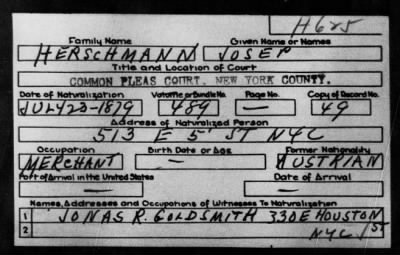 H625
Family Name Given Name or Names
HERSCHMANN JOSEP
Title and Location of Court
COMMON PLEAS COURT, NEW YORK COUNTY.
Date of Naturalization Volume or Bundle No. Page No. Copy of Record No.
JULY 23-1879 489 — 49
Address of Naturalized Person
513 E 5" ST NYC
Occupation Birth Date or Age Former Nationality
MERCHANT — AUSTRIAN
Port of Arrival in the United States Date of Arrival
— —
Names, Addresses and Occupations of Witnesses To Naturalization
1 JONAS R. GOLDSMITH 330 E HOUSTON
2 NYC. / ST